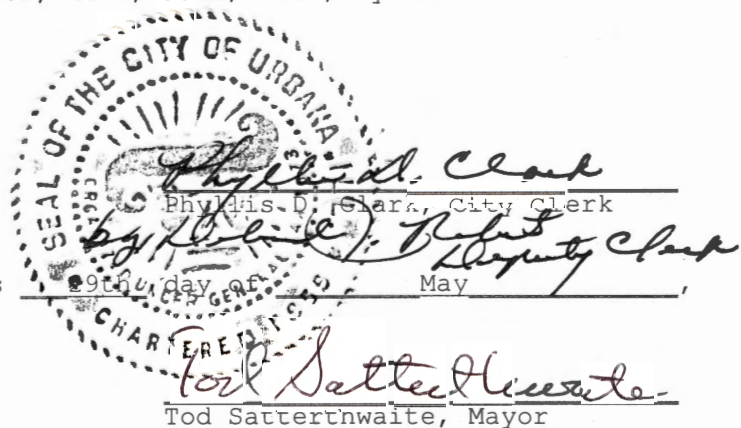 SEAL OF THE CITY OF URBANA
CHARTERED 1855
Phyllis D. Clark
Phyllis D. Clark, City Clerk
by Deputy Clerk
29th day of May,
Tod Satterthwaite
Tod Satterthwaite, Mayor